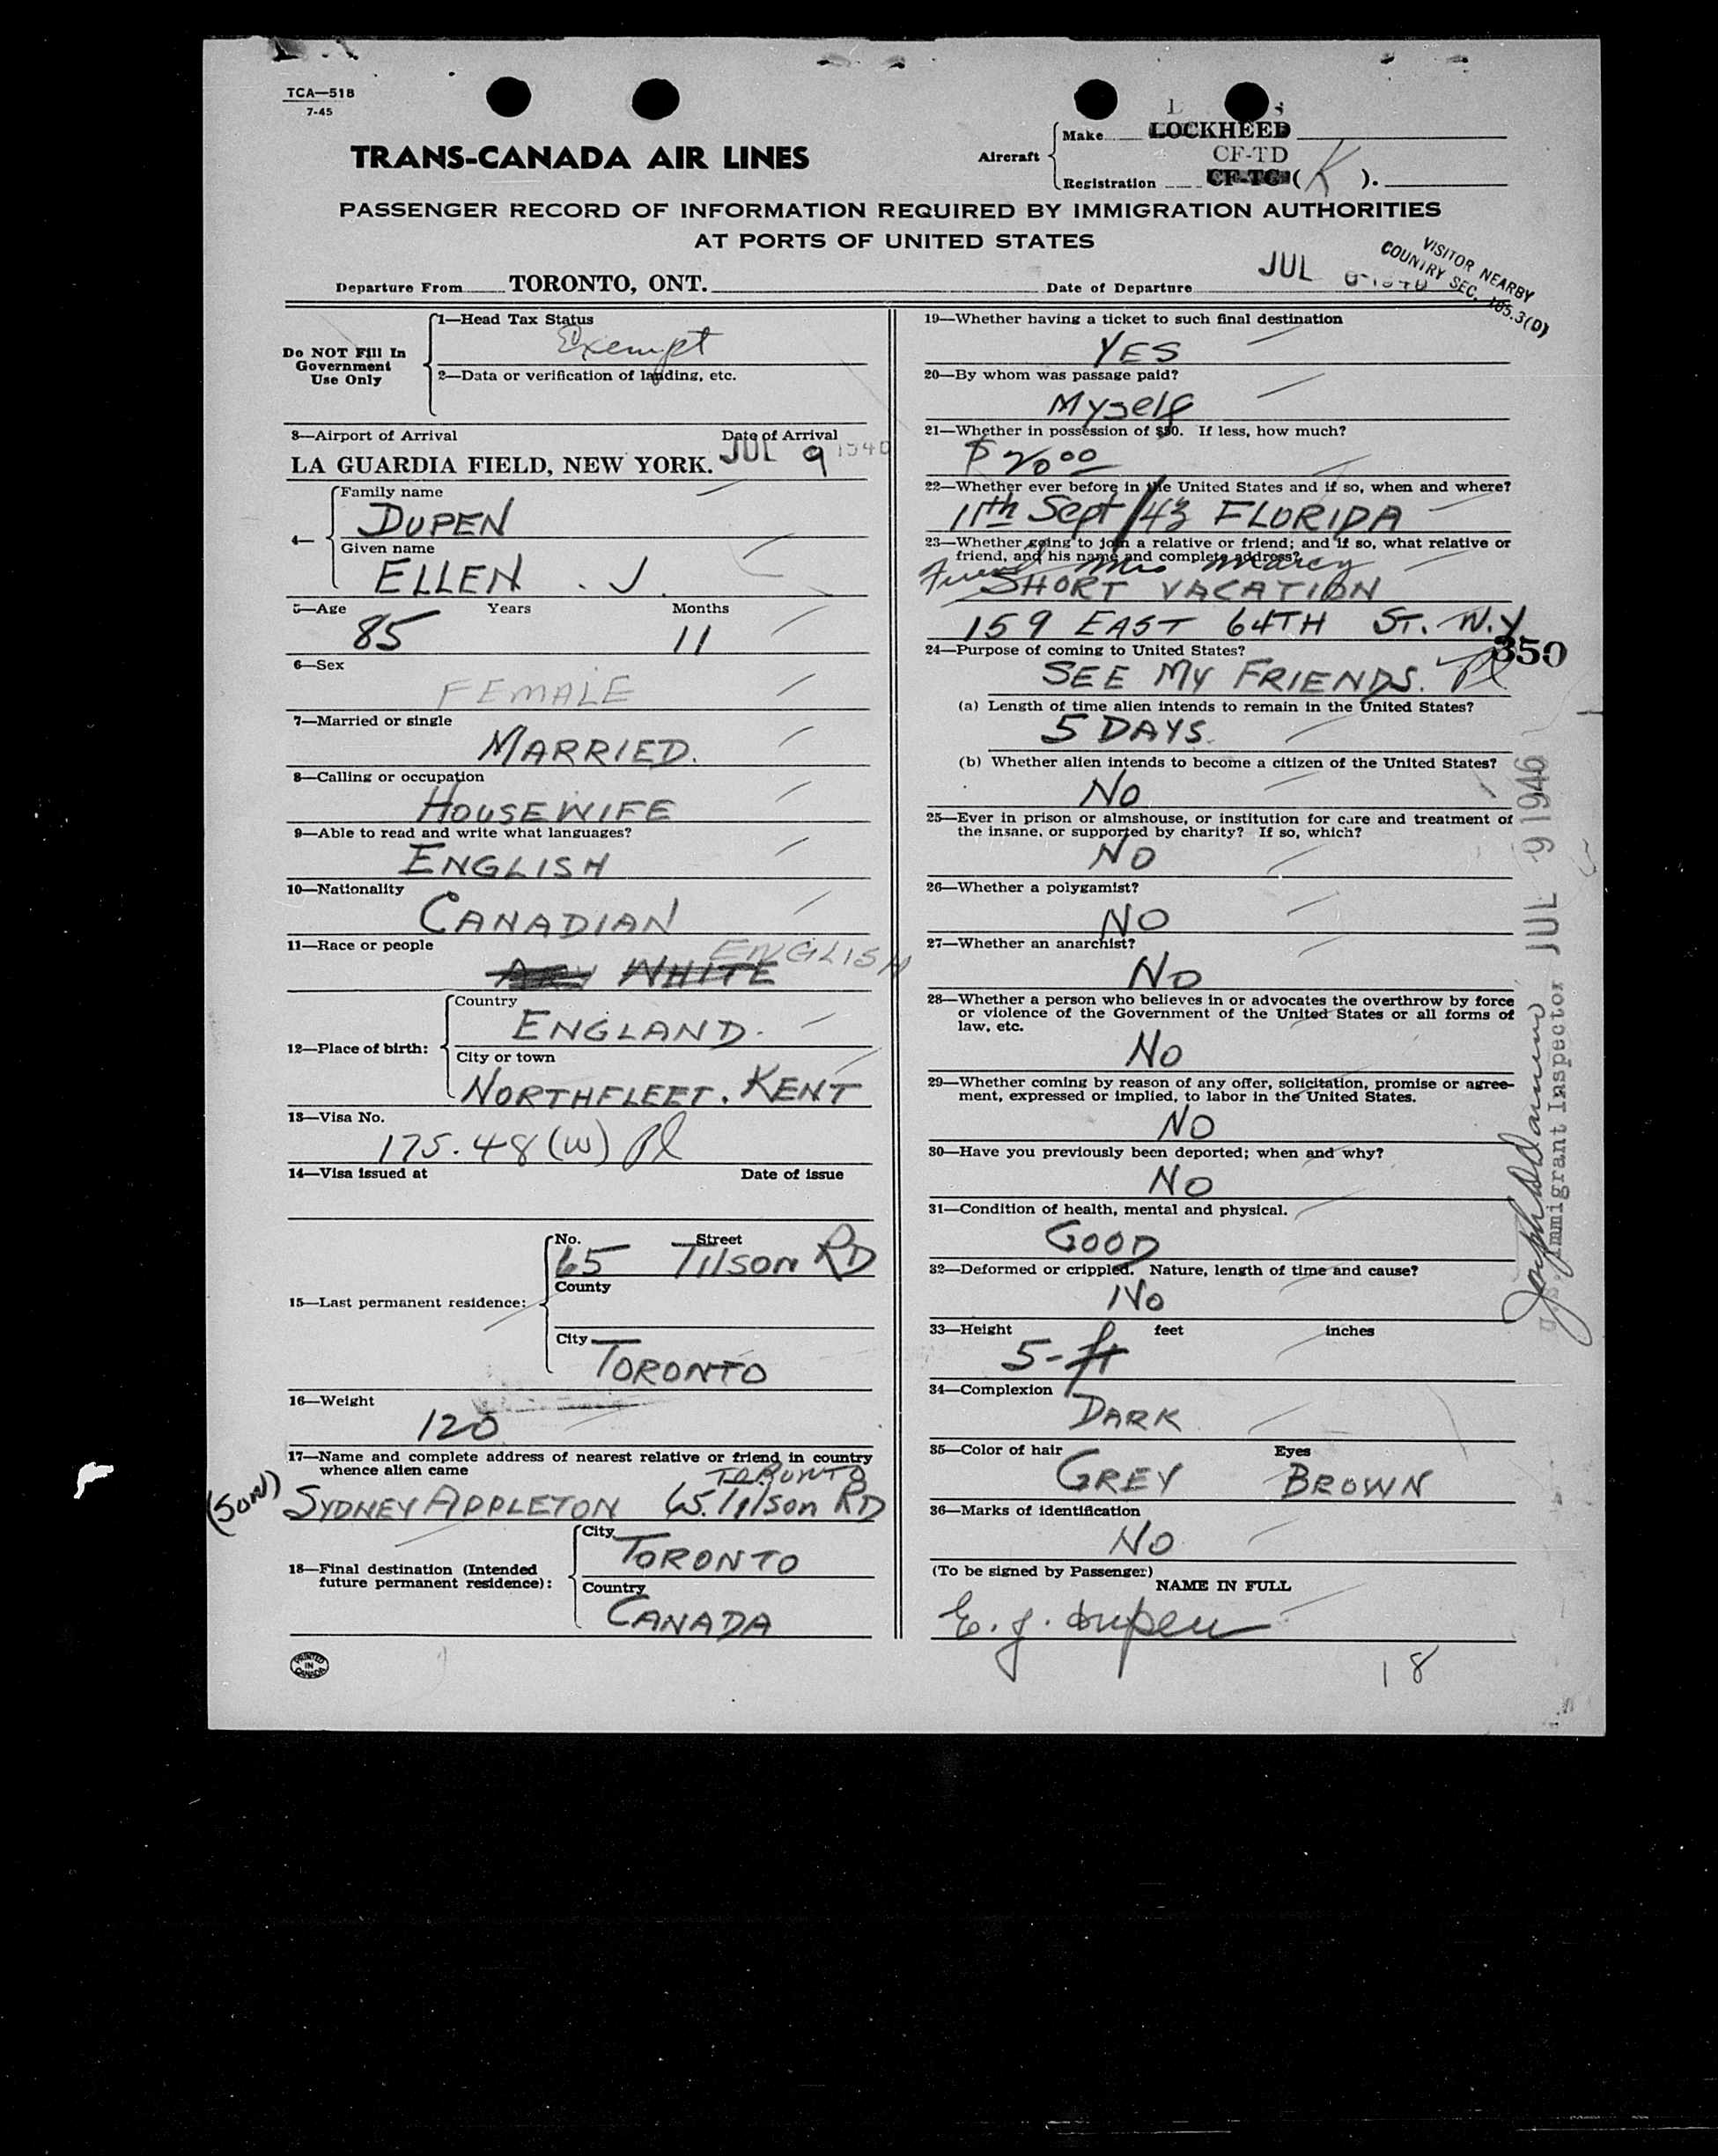 TCA—518
7-45
TRANS-CANADA AIR LINES
Aircraft
Make LOCKHEED
CF-TD
Registration CF-TC (K).
PASSENGER RECORD OF INFORMATION REQUIRED BY IMMIGRATION AUTHORITIES
AT PORTS OF UNITED STATES
VISITOR NEARBY
COUNTRY SEC. 165.3(D)
Departure From TORONTO, ONT. Date of Departure JUL
Do NOT Fill In
Government
Use Only
1—Head Tax Status
Exempt
2—Data or verification of landing, etc.
3—Airport of Arrival Date of Arrival
LA GUARDIA FIELD, NEW YORK. JUL 9
4—
Family name
DUPEN
Given name
ELLEN . J.
5—Age Years Months
85 11
6—Sex
FEMALE
7—Married or single
MARRIED.
8—Calling or occupation
HOUSEWIFE
9—Able to read and write what languages?
ENGLISH
10—Nationality
CANADIAN
11—Race or people
ENGLISH
WHITE
12—Place of birth:
Country
ENGLAND.
City or town
NORTHFLEET. KENT
13—Visa No.
175.48 (W)
14—Visa issued at Date of issue
15—Last permanent residence:
No. Street
65 TILSON RD
County
City
TORONTO
16—Weight
120
17—Name and complete address of nearest relative or friend in country
whence alien came
TORONTO
(SON) SYDNEY APPLETON 65. Tilson RD
18—Final destination (Intended
future permanent residence):
City
TORONTO
Country
CANADA
PRINTED
IN
CANADA
19—Whether having a ticket to such final destination
YES
20—By whom was passage paid?
Myself
21—Whether in possession of $50. If less, how much?
$ 20 00
22—Whether ever before in the United States and if so, when and where?
11th Sept / 43 FLORIDA
23—Whether going to join a relative or friend; and if so, what relative or
friend, and his name and complete address?
Friend Mrs Marcy
SHORT VACATION
159 EAST 64TH ST. N.Y
350
24—Purpose of coming to United States?
SEE MY FRIENDS.
(a) Length of time alien intends to remain in the United States?
5 DAYS.
(b) Whether alien intends to become a citizen of the United States?
NO
25—Ever in prison or almshouse, or institution for care and treatment of
the insane, or supported by charity? If so, which?
NO
26—Whether a polygamist?
NO
27—Whether an anarchist?
NO
28—Whether a person who believes in or advocates the overthrow by force
or violence of the Government of the United States or all forms of
law, etc.
NO
29—Whether coming by reason of any offer, solicitation, promise or agree-
ment, expressed or implied, to labor in the United States.
NO
30—Have you previously been deported; when and why?
NO
31—Condition of health, mental and physical.
GOOD
32—Deformed or crippled. Nature, length of time and cause?
NO
33—Height feet inches
5-ft
34—Complexion
DARK
35—Color of hair Eyes
GREY BROWN
36—Marks of identification
NO
(To be signed by Passenger)
NAME IN FULL
E. J. Dupen
18
JUL 9 1946
U.S. Immigrant Inspector